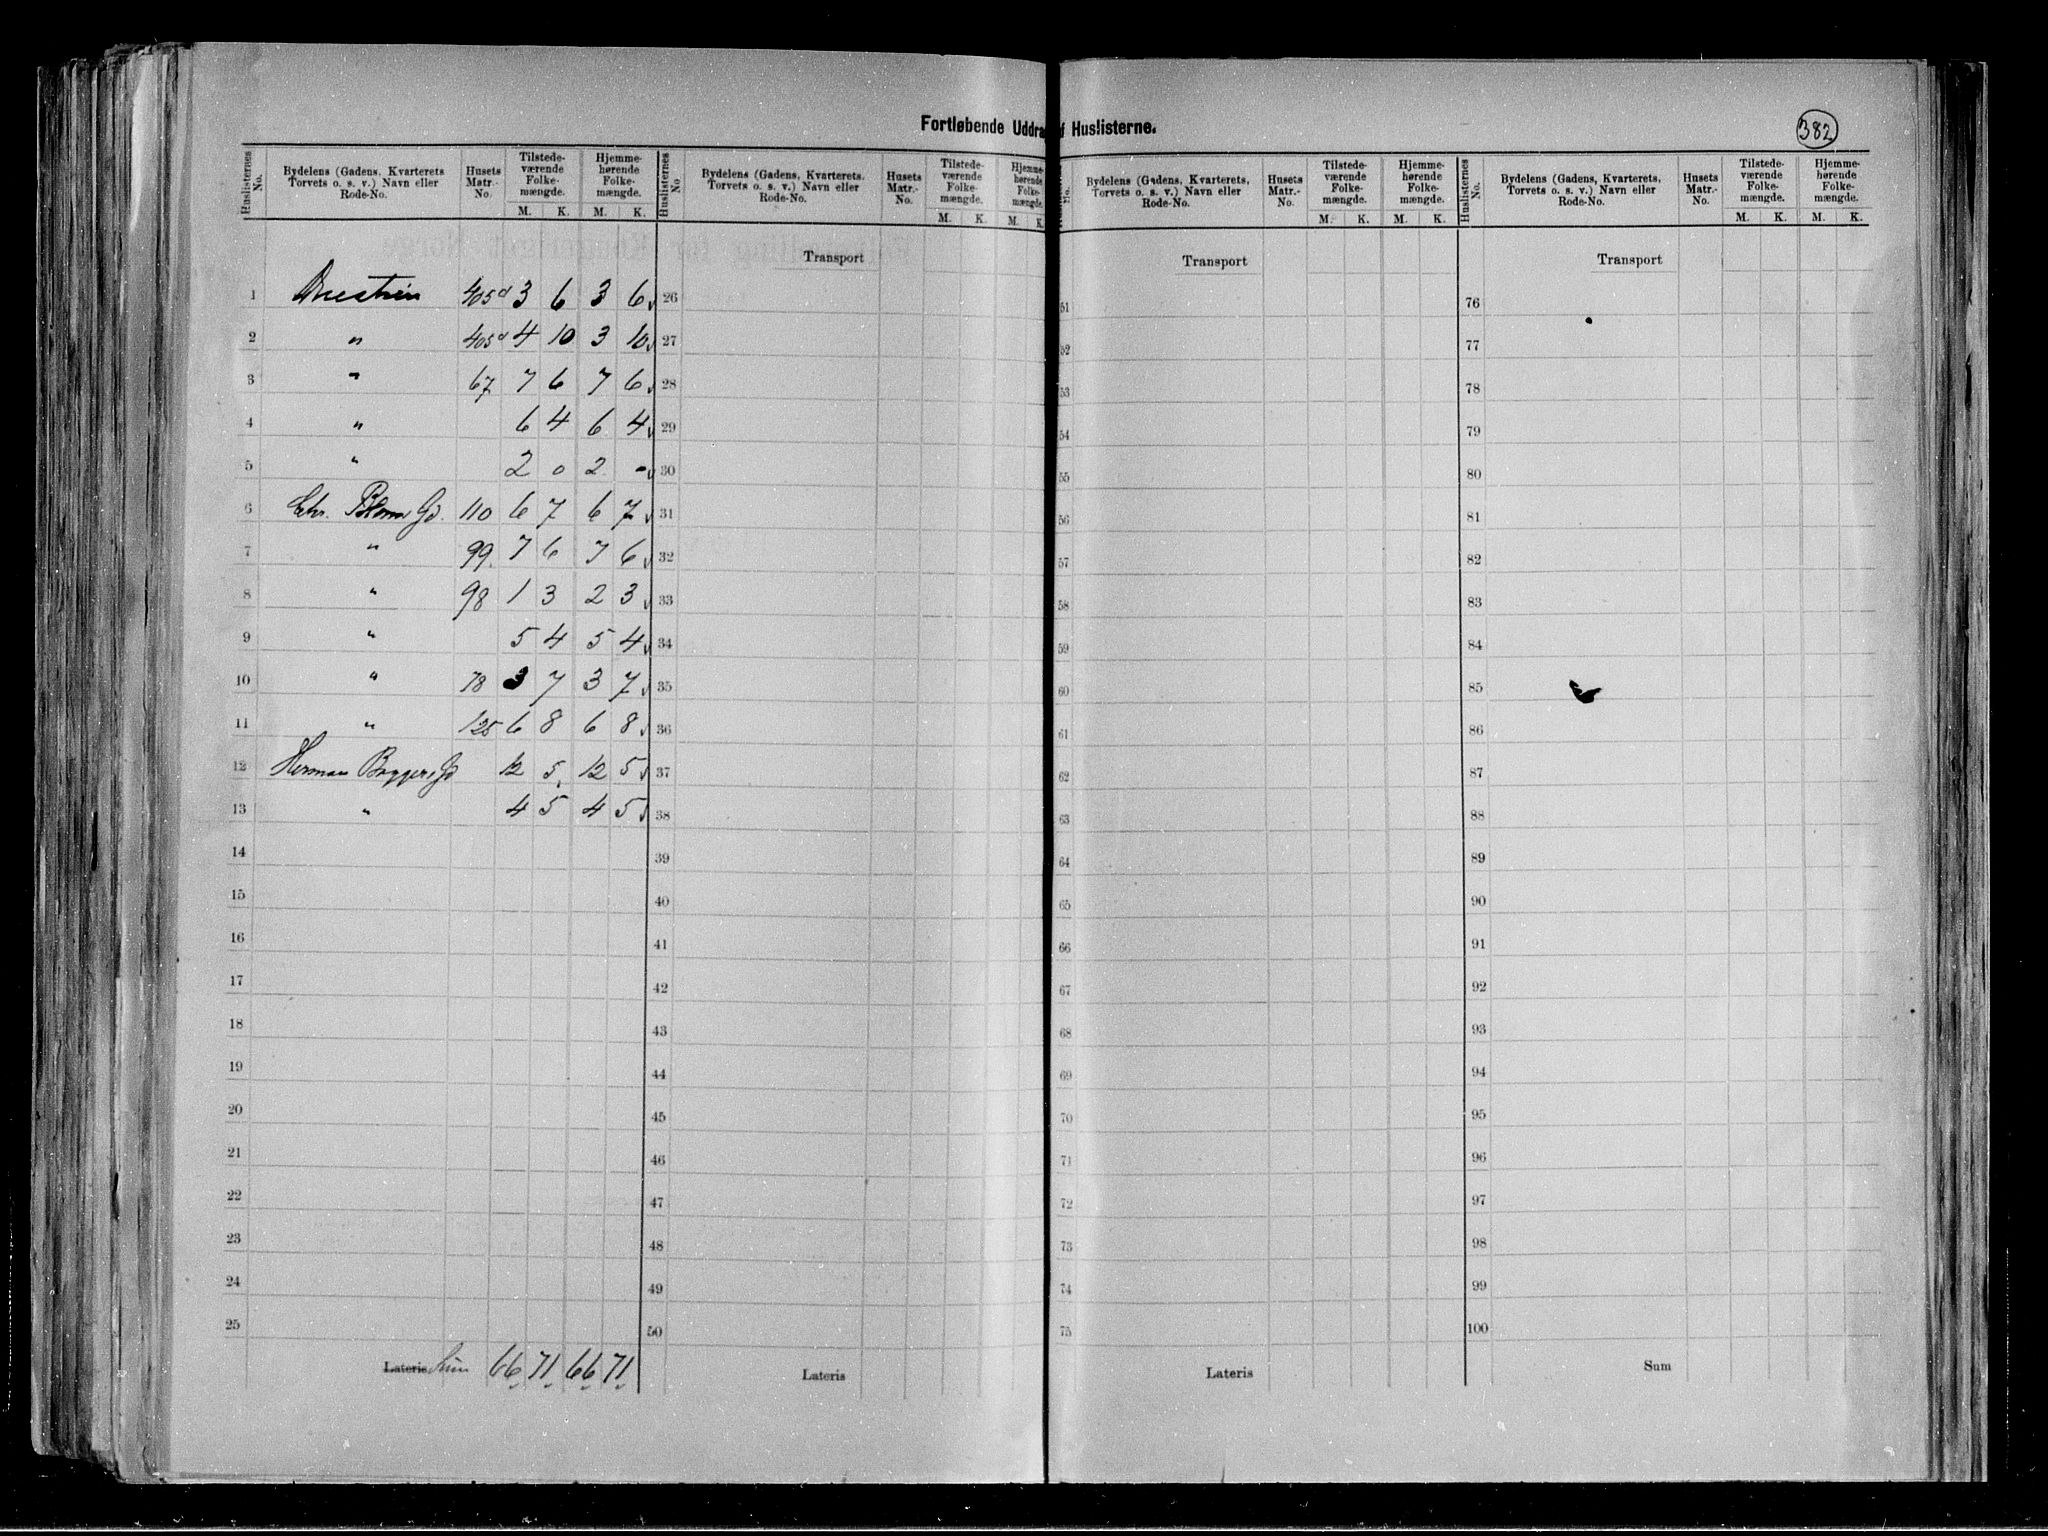 Fortløbende Uddra f Huslisterne.
382
Huslisternes No.
Bydelens (Gadens, Kvarterets Torvets o. s. v.) Navn eller Rode-No.
Husets Matr.-No.
Tilstede-værende Folke-mængde.
M. K.
Hjemme-hørende Folke-mængde.
M. K.
Huslisternes No
Bydelens (Gadens, Kvarterets, Torvets o. s. v.) Navn eller Rode-No.
Husets Matr.-No.
Tilstede-værende Folke-mængde.
M. K.
Hjemme-hørende Folke-mængde.
M. K.
No.
Bydelens (Gadens, Kvarterets, Torvets o. s. v.) Navn eller Rode-No.
Husets Matr.-No.
Tilstede-værende Folke-mængde.
M. K.
Hjemme-hørende Folke-mængde.
M. K.
Huslisternes No.
Bydelens (Gadens, Kvarterets, Torvets o. s. v.) Navn eller Rode-No.
Husets Matr.-No.
Tilstede-værende Folke-mængde.
M. K.
Hjemme-hørende Folke-mængde.
M. K.
Transport
Transport
Transport
1 405d 3 6 3 6 26 51 76
2 " 405d 4 10 3 10 27 52 77
3 " 67 7 6 7 6 28 53 78
4 " 6 4 6 4 29 54 79
5 " 2 0 2 - 30 55 80
6 Chr. Bloms Gd. 110 6 7 6 7 31 56 81
7 " 99 7 6 7 6 32 57 82
8 " 98 1 3 2 3 33 58 83
9 " 5 4 5 4 34 59 84
10 " 78 3 7 3 7 35 60 85
11 " 125 6 8 6 8 36 61 86
12 Herman Baggers Gd 12 5 12 5 37 62 87
13 " 4 5 4 5 38 63 88
14 39 64 89
15 40 65 90
16 41 66 91
17 42 67 92
18 43 68 93
19 44 69 94
20 45 70 95
21 46 71 96
22 47 72 97
23 48 73 98
24 49 74 99
25 50 75 100
Lateris Sum 66 71 66 71
Lateris
Lateris
Sum